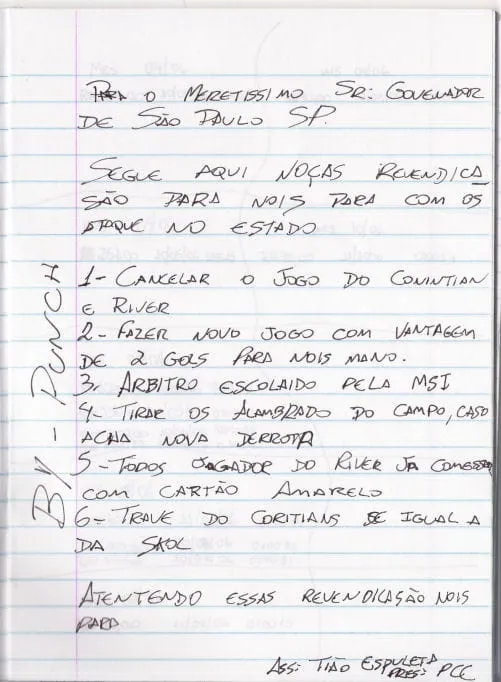 PARA O MERETISSIMO SR: GOVENADOR
DE SÃO PAULO SP.
SEGUE AQUI NOÇAS REVENDICA
SÃO PARA NOIS PARA COM OS
ATAQUE NO ESTADO
1- CANCELAR O JOGO DO CONINTIAN
E RIVER
2- FAZER NOVO JOGO COM VANTAGEM
DE 2 GOLS PARA NOIS MANO.
3- ARBITRO ESCOLAIDO PELA MSI
4- TIRAR OS ALAMBRADO DO CAMPO, CASO
ACHA NOVA DERROTA
5- TODOS JAGADOR DO RIVER JA COMESSA
COM CARTÃO AMARELO
6- TRAVE DO CORITIANS SE IGUAL A
DA SKOL
ATENTENDO ESSAS REVENDICASÃO NOIS
PARA
ASS: TIÃO ESPULETA
PRES: PCC
BY - PUNCH